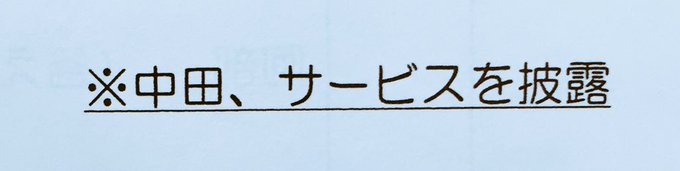 ※中田、サービスを披露